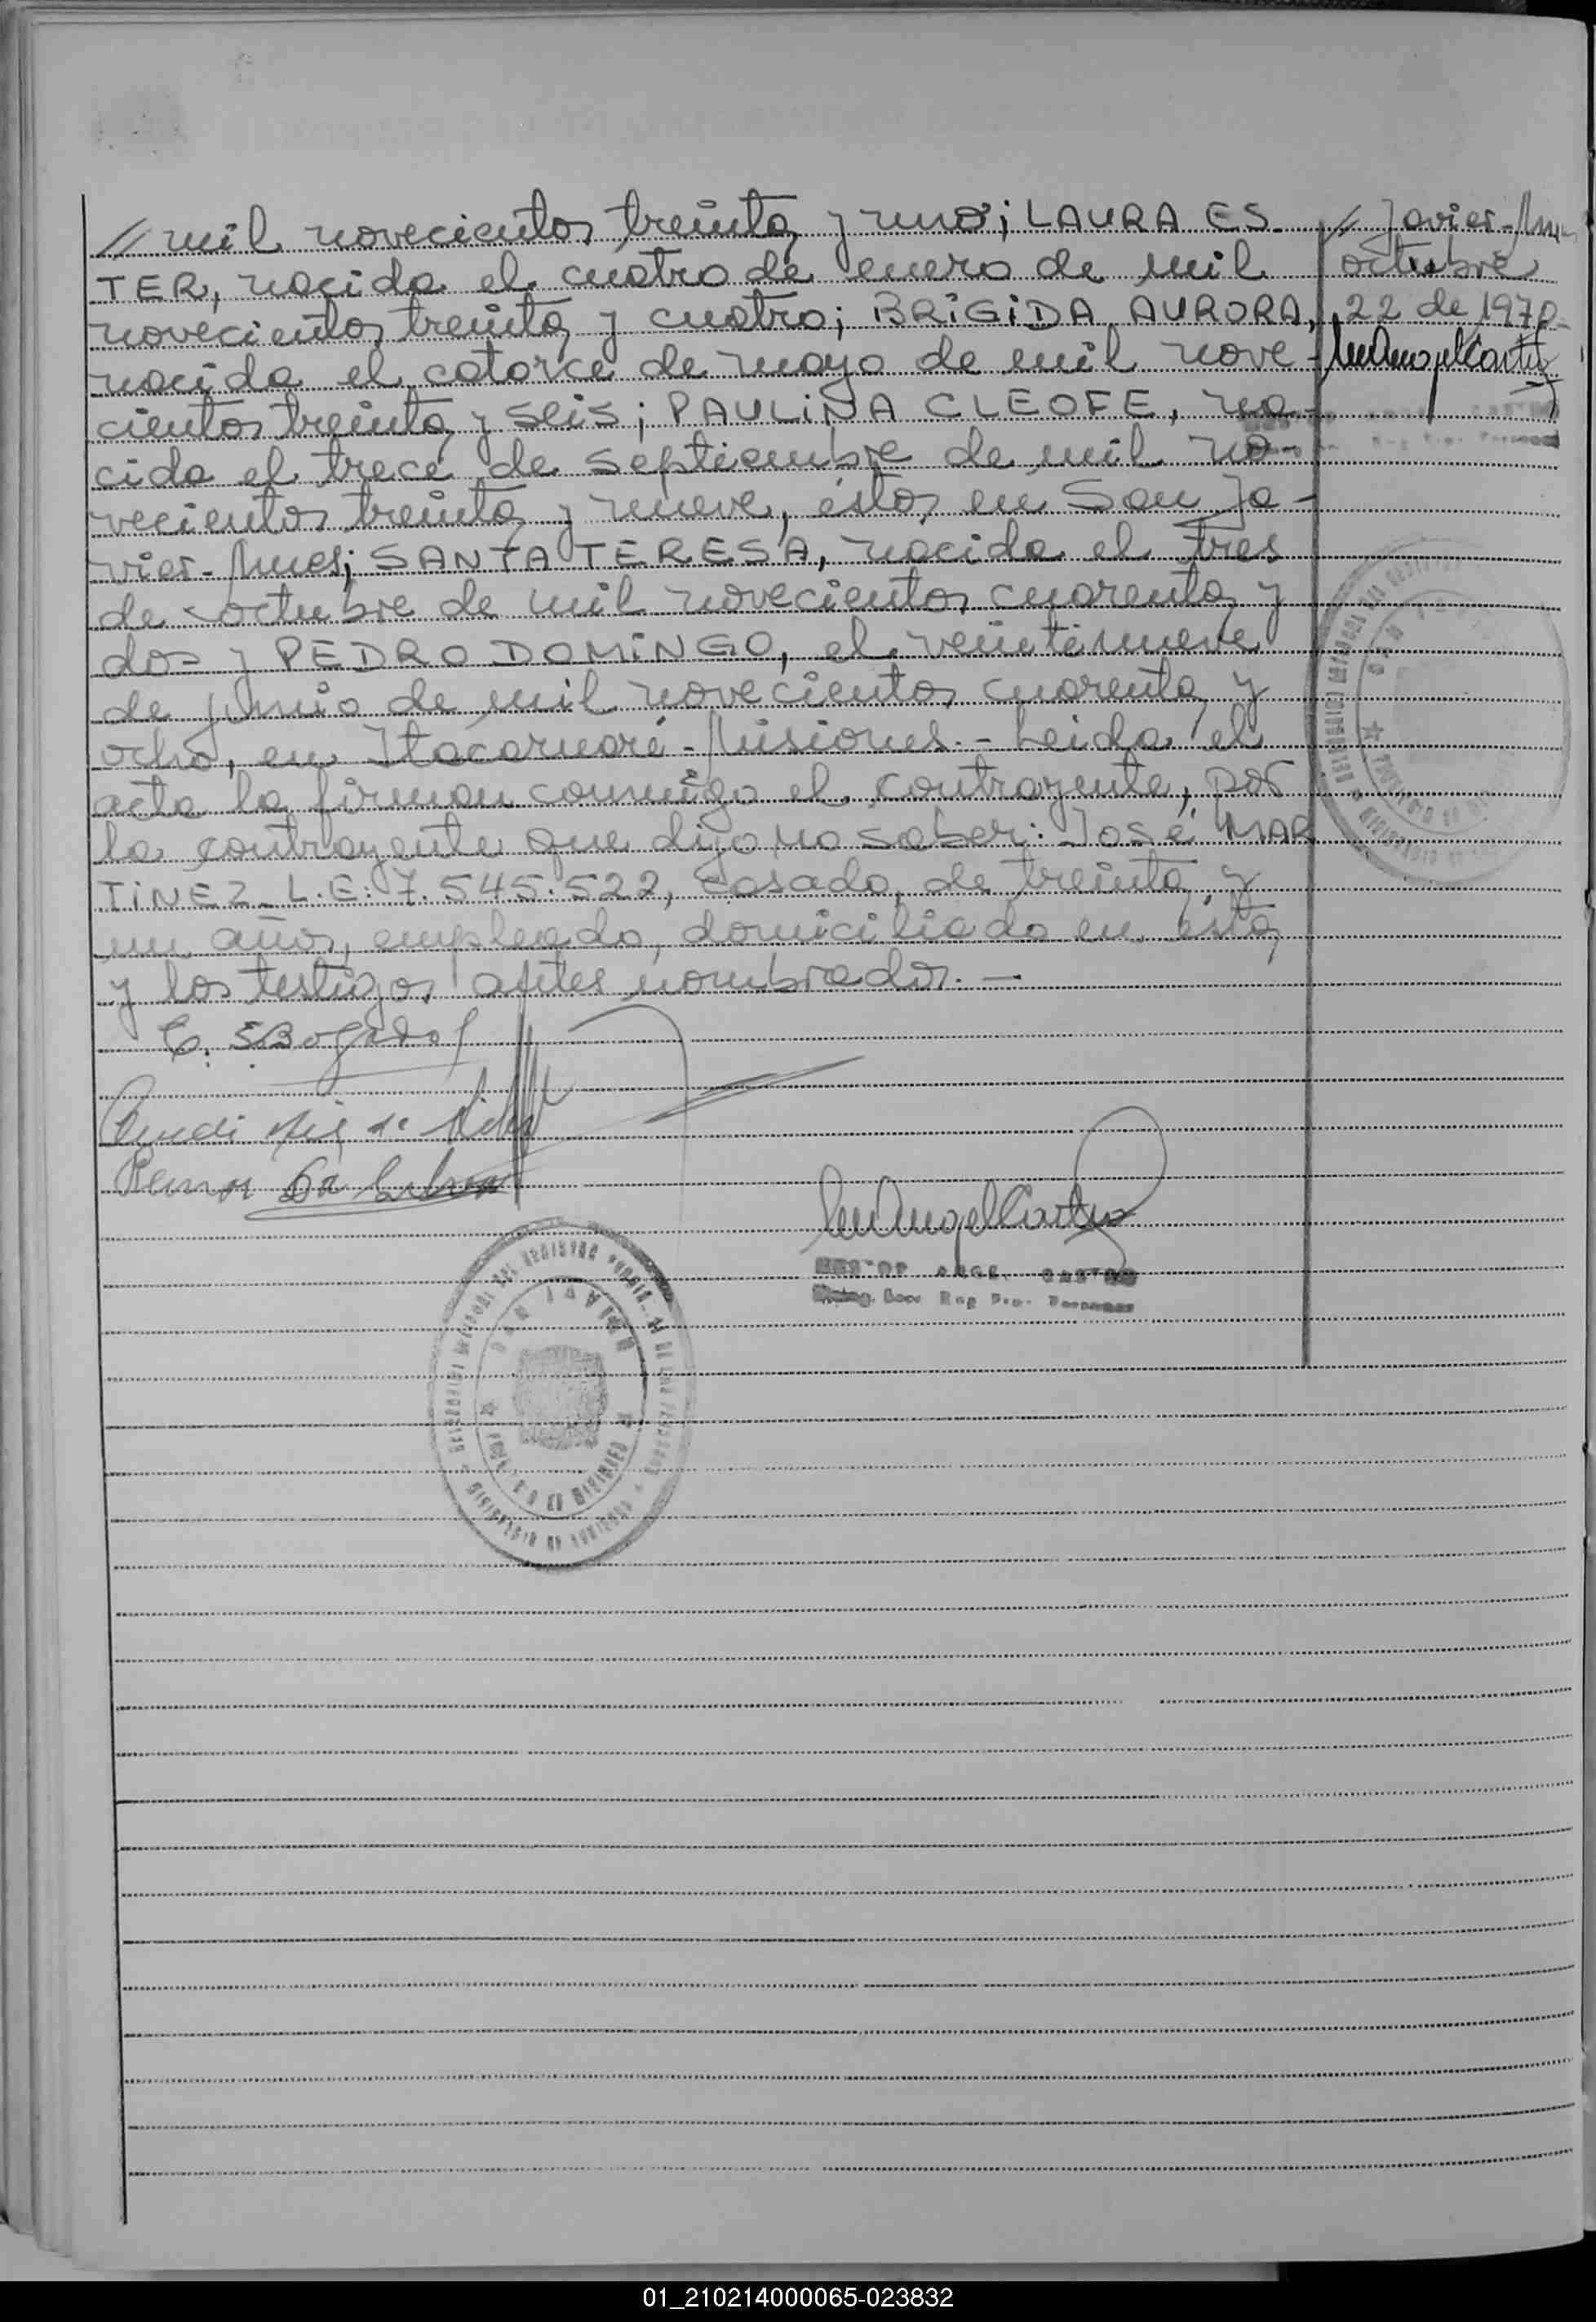 // mil novecientos treinta y uno; LAURA ES-
TER, nacida el cuatro de enero de mil
novecientos treinta y cuatro; BRIGIDA AURORA,
nacida el catorce de mayo de mil nove-
cientos treinta y seis; PAULINA CLEOFE, na-
cida el trece de septiembre de mil no-
vecientos treinta y nueve, éstos en San Ja-
vier-Mnes; SANTA TERESA, nacida el tres
de octubre de mil novecientos cuarenta y
dos y PEDRO DOMINGO, el veintinueve
de junio de mil novecientos cuarenta y
ocho, en Itacaruaré-Misiones.- Leida el
acta la firman conmigo el contrayente, por
la contrayente que dijo no saber: José MAR
TINEZ_ L.E: 7.545.522, casado, de treinta y
un años, empleado, domiciliado en ésta
y los testigos antes nombrados.-
// Javier-Mnes
octubre
22 de 1970-
C. S Bogado
Ramon Da Silva
SAN JAVIER
01_210214000065-023832